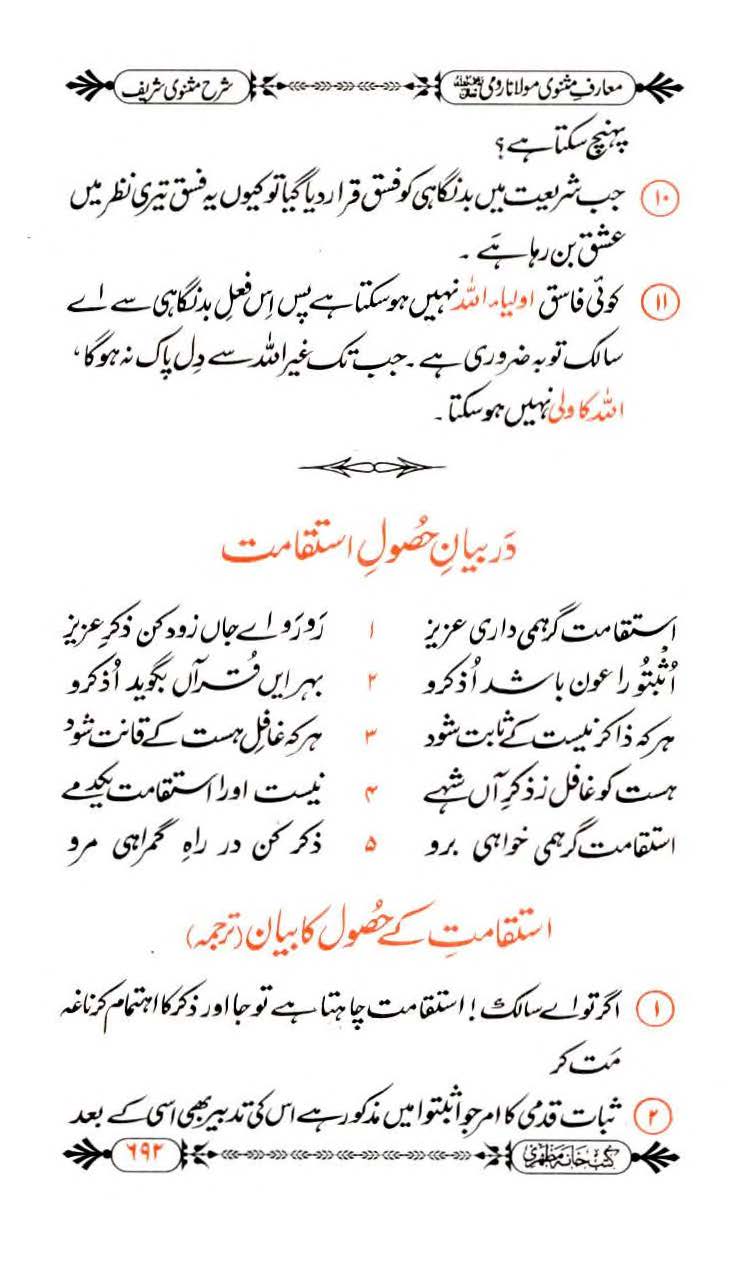 معارفِ مثنوی مولانا رومی شرح مثنوی شریف
پہنچ سکتا ہے؟
۱۰ جب شریعت میں بدنگاہی کو فسق قرار دیا گیا تو کیوں یہ فسق تیری نظر میں
عشق بن رہا ہَے ۔
۱۱ کوئی فاسق اولیاء اللہ نہیں ہو سکتا ہے پس اِس فعلِ بدنگاہی سے اے
سالک توبہ ضروری ہے ۔ جب تک غیر اللہ سے دِل پاک نہ ہو گا،
اللہ کا ولی نہیں ہو سکتا ۔
دَر بیانِ حُصولِ استقامت
استقامت گر ہمی داری عزیز ۱ رَو رَو اے جاں زود کن ذکرِ عزیز
اُثْبُتُو را عون باشد اُذکرو ۲ بہر ایں قُرآں بگوید اُذکرو
ہر کہ ذاکر نیست کے ثابت شود ۳ ہر کہ غافِل ہست کے قانت شود
ہست کو غافل ز ذکرِ آں شہے ۴ نیست او را استقامت یکدمے
استقامت گر ہمی خواہی برو ۵ ذکر کن در راہِ گمراہی مرو
استقامتِ کے حُصول کا بیان (ترجمہ)
۱ اگر تو اے سالک ! استقامت چاہتا ہے تو جا اور ذکر کا اہتمام کر ناغہ
مَت کر
۲ ثبات قدمی کا امر جو اثبتوا میں مذکور ہے اس کی تدبیر بھی اسی کے بعد
کتب خانہ مظہری ۶۹۲